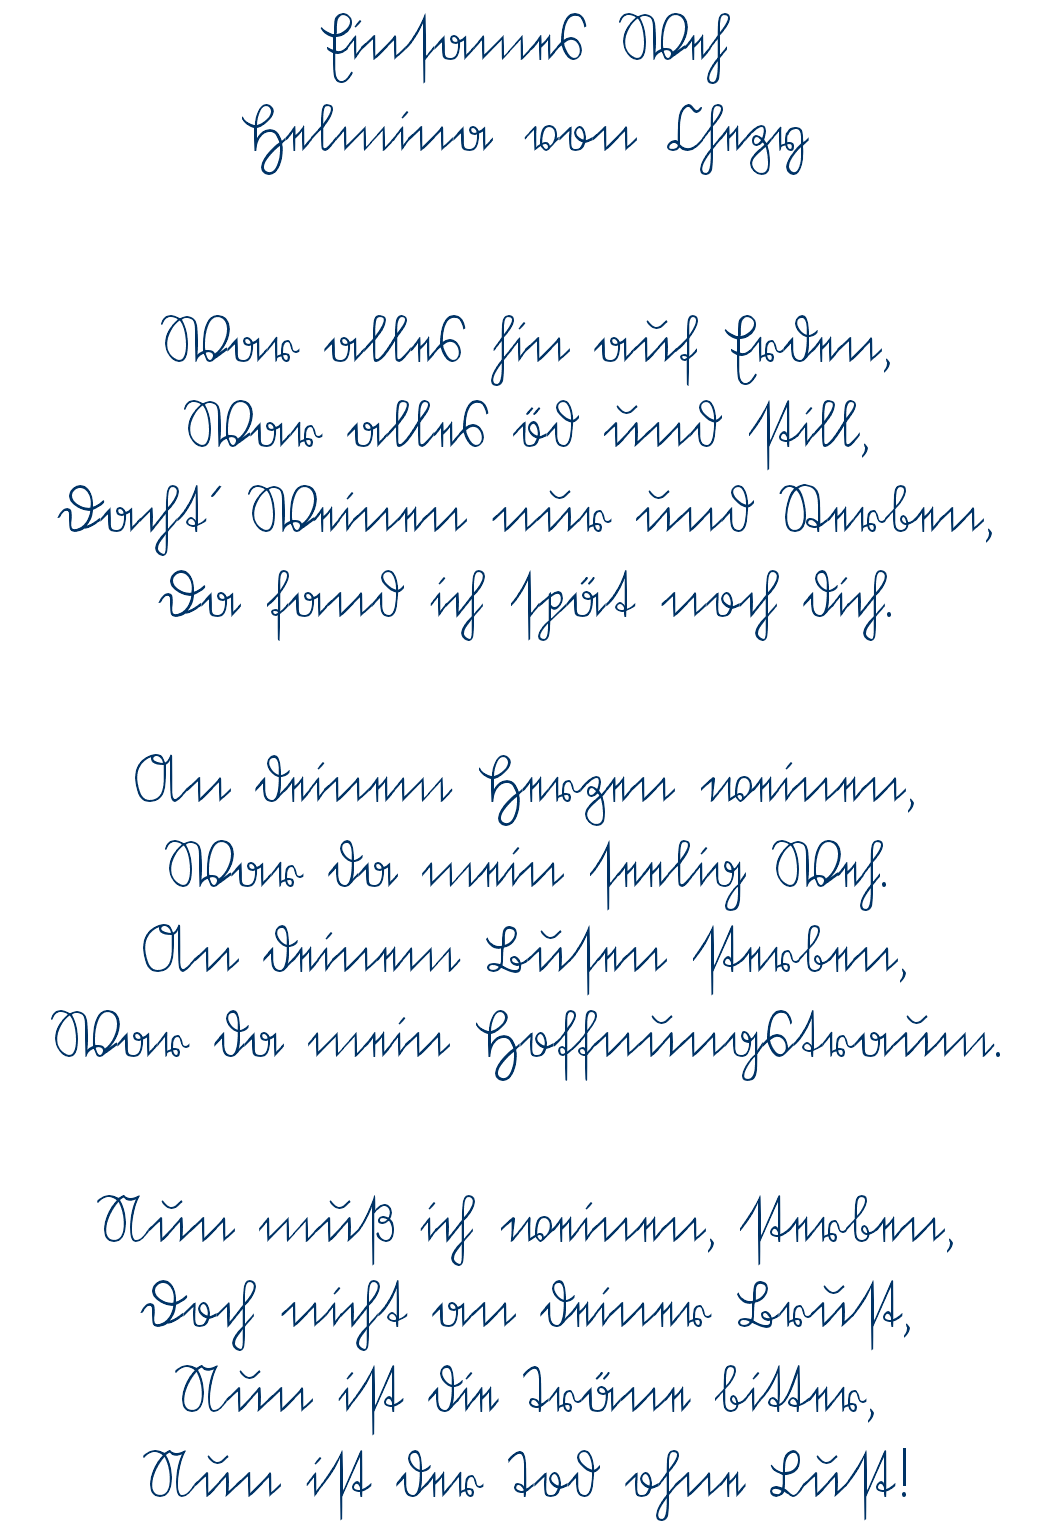 Einsames Weh
Helmina von Chezy
War alles hin auf Erden,
War alles öd und still,
Dacht´ Weinen nur und Sterben,
Da fand ich spät noch dich.
An deinem Herzen weinen,
War da mein seelig Weh.
An deinem Busen sterben,
War da mein Hoffnungstraum.
Nun muß ich weinen, sterben,
Doch nicht an deiner Brust,
Nun ist die Träne bitter,
Nun ist der Tod ohne Lust!